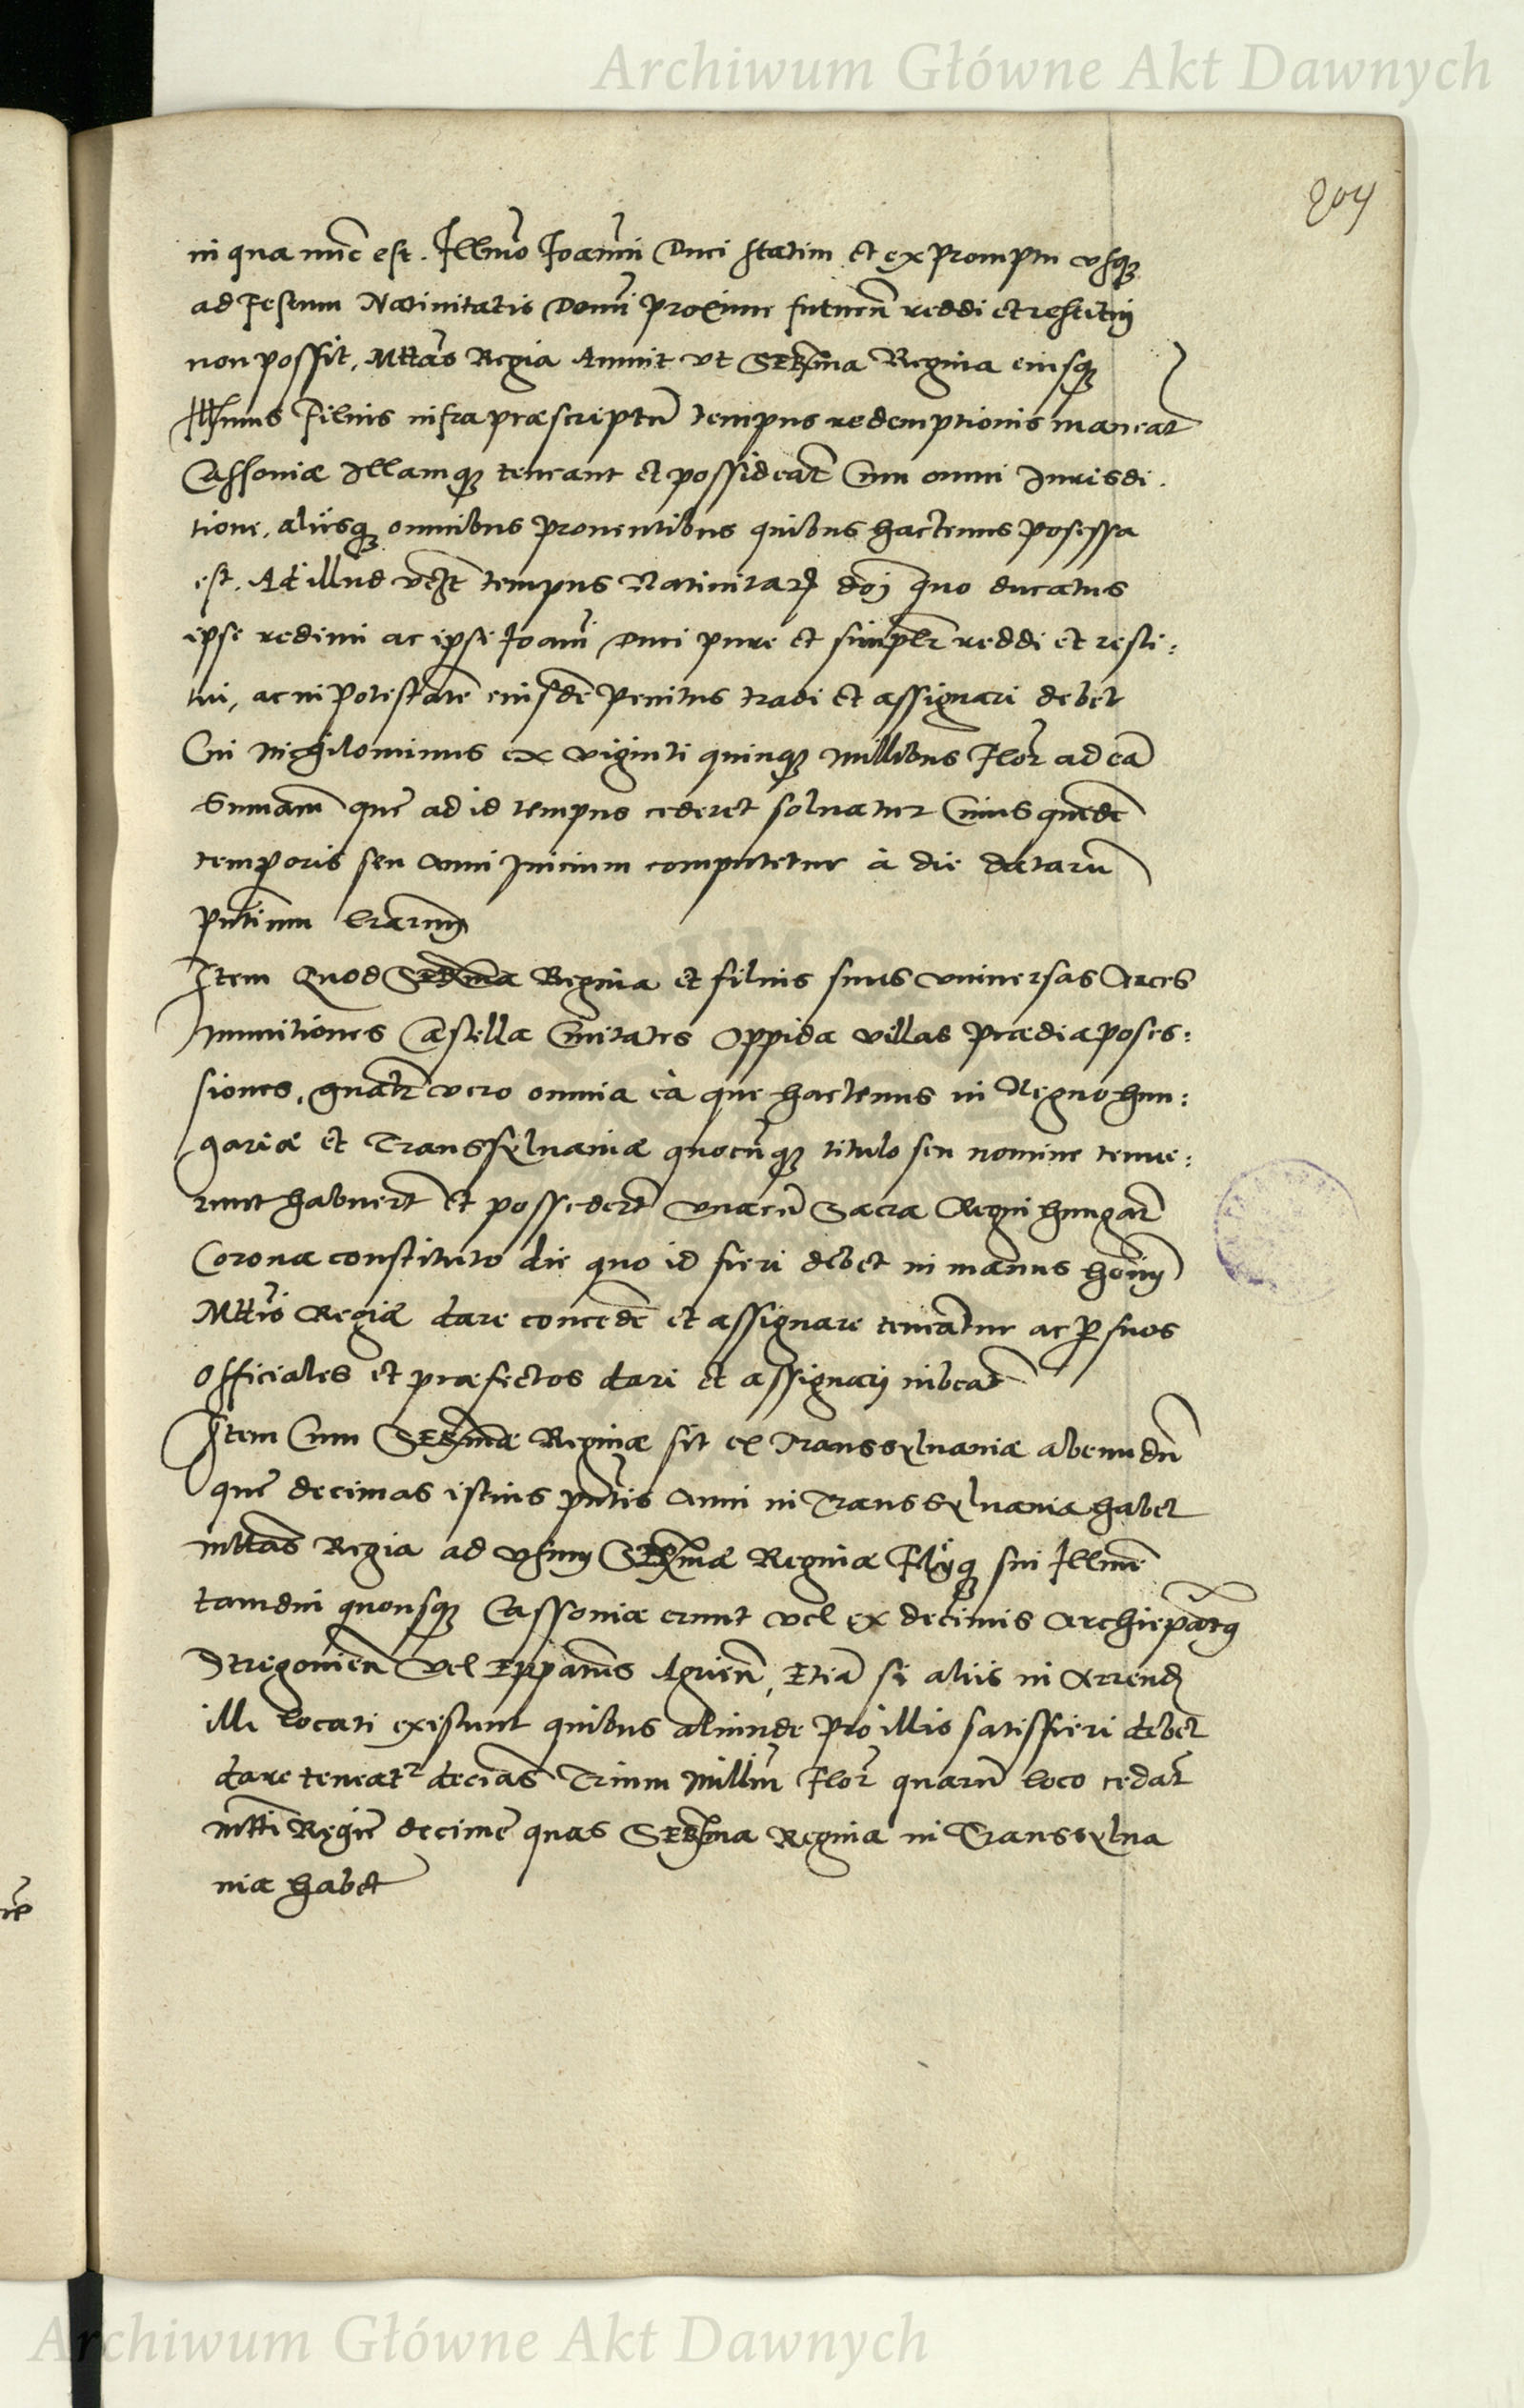 Archiwum Główne Akt Dawnych
204
in qua nunc est. Illmo Joanni Duci statim et ex promptu usq
ad Festum Natiuitatis Domi proxime futurū reddi et restitui
non possit, Mttas Regia Annuit vt Serma Regina eiusq
Illmus Filius infra præscriptū tempus redemptionis maneāt
Cassouiæ Illamq teneant et possideāt Cum omni Jurisdi.
tione, aliisq omnibus prouentibus quibus hactenus posessa
est. Ad illud vsq tempus Natiuitatis doi quo ducatus
ipse redimi ac ipsi Joanni Duci pure et simplr reddi et resti:
tui, ac in potestatē eiusdē penitus tradi et assignari debet
Cui nichilominus ex viginti quinq millibus Flor ad eā
Summam que ad id tempus cederet soluatur Cuius quidē
temporis seu Anni Inicium computetur à die datarū
pntium lrarum
Item Quod Serma Regina et filius suus vniuersas Arces
munitiones Castella Ciuitates Oppida villas prædia poses:
siones, gnalr vero omnia eà que hactenus in Regno hun:
gariæ et Transsyluaniæ quocūq titulo seu nomine tenue:
runt habuerūt et possederūt vnacū Sacra Regni hungar
Corona constituto die quo id fieri debet in manus hoim
Mttis Regiæ dare concedē et assignare teneantur ac p suos
Officiales et præfectos dari et assignari iubeāt
Item Cum Sermæ Reginæ sit ex Transsyluania abeundū
que decimas istius pntis Anni in Transsyluania habet
mttas Regia ad vsum Sermæ Reginæ Filijq sui Illmi
tamdiu quousq Cassouiæ erunt vel ex decimis Archiepatus
Strigonien vel Eppatus Agrien, Etiā si aliis in Arrendam
illi locati existunt quibus aliunde pro illis satisfieri debet
dare teneatr decimas Trium milliū Flor quarū loco cedāt
mtti Regie decime quas Serma Regina in Transsylua
nia habet
Archiwum Główne Akt Dawnych